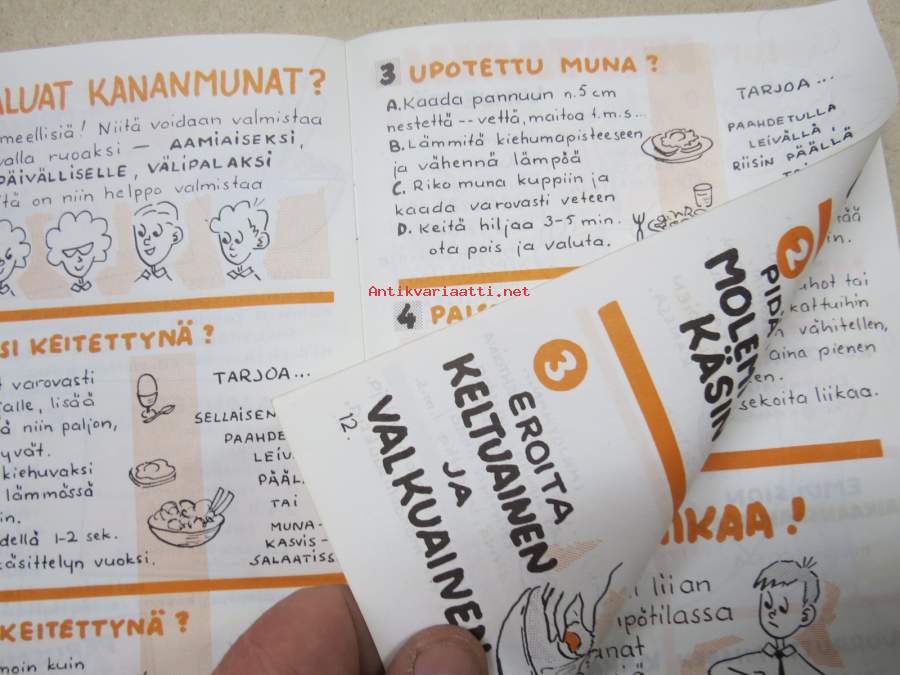 LUAT KANANMUNAT?
meellisiä! Niitä voidaan valmistaa
valla ruoaksi — AAMIAISEKSI,
PÄIVÄLLISELLE, VÄLIPALAKSI
tä on niin helppo valmistaa
SI KEITETTYNÄ?
varovasti
alle, lisää
ä niin paljon,
yvät.
kiehuvaksi
lämmössä
in.
dellä 1-2 sek.
käsittelyn vuoksi.
TARJOA...
SELLAISEN
PAAHDE
LEIV
PÄÄL
TAI
MUNA-
KASVIS-
SALAATISS
KEITETTYNÄ?
moin kuin
3 UPOTETTU MUNA?
A. Kaada pannuun n. 5 cm
nestettä -- vettä, maitoa t.m.s...
B. Lämmitä kiehumapisteeseen
ja vähennä lämpöä
C. Riko muna kuppiin ja
kaada varovasti veteen
D. Keitä hiljaa 3-5 min.
ota pois ja valuta.
TARJOA...
PAAHDETULLA
LEIVÄLLÄ,
RIISIN PÄÄLLÄ
Antikvariaatti.net
4 PAIS
rää
in.
uhot tai
kattuihin
n vähitellen,
aina pienen
en.
sekoita liikaa.
IKAA!
liian
ipötilassa
nat
2
PIDÄ
MOLEM
KÄSIN
3
EROITA
KELTUAINEN
JA
VALKUAINEN
12.